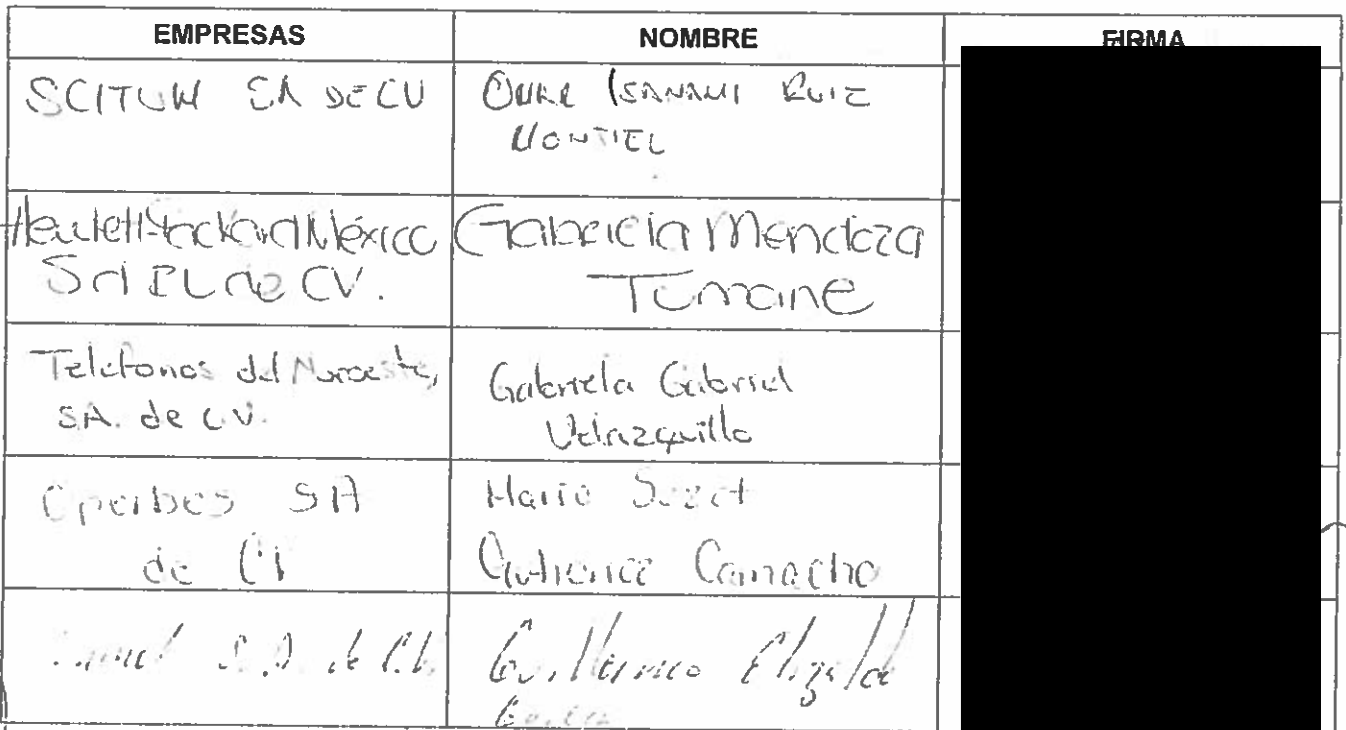 EMPRESAS NOMBRE FIRMA
SCITUM SA DE CV OMAR ISANAMI RUIZ
MONTIEL
Hewlett Packard México Gabriela Mendoza
S d RL de CV. Tumoine
Teléfonos del Noroeste, Gabriela Gabriel
S.A. de C.V. Velazquillo
Operbes SA Mario Suzet
de CV Gutierrez Camacho
S.A. de C.V. Guillermo Elizalde